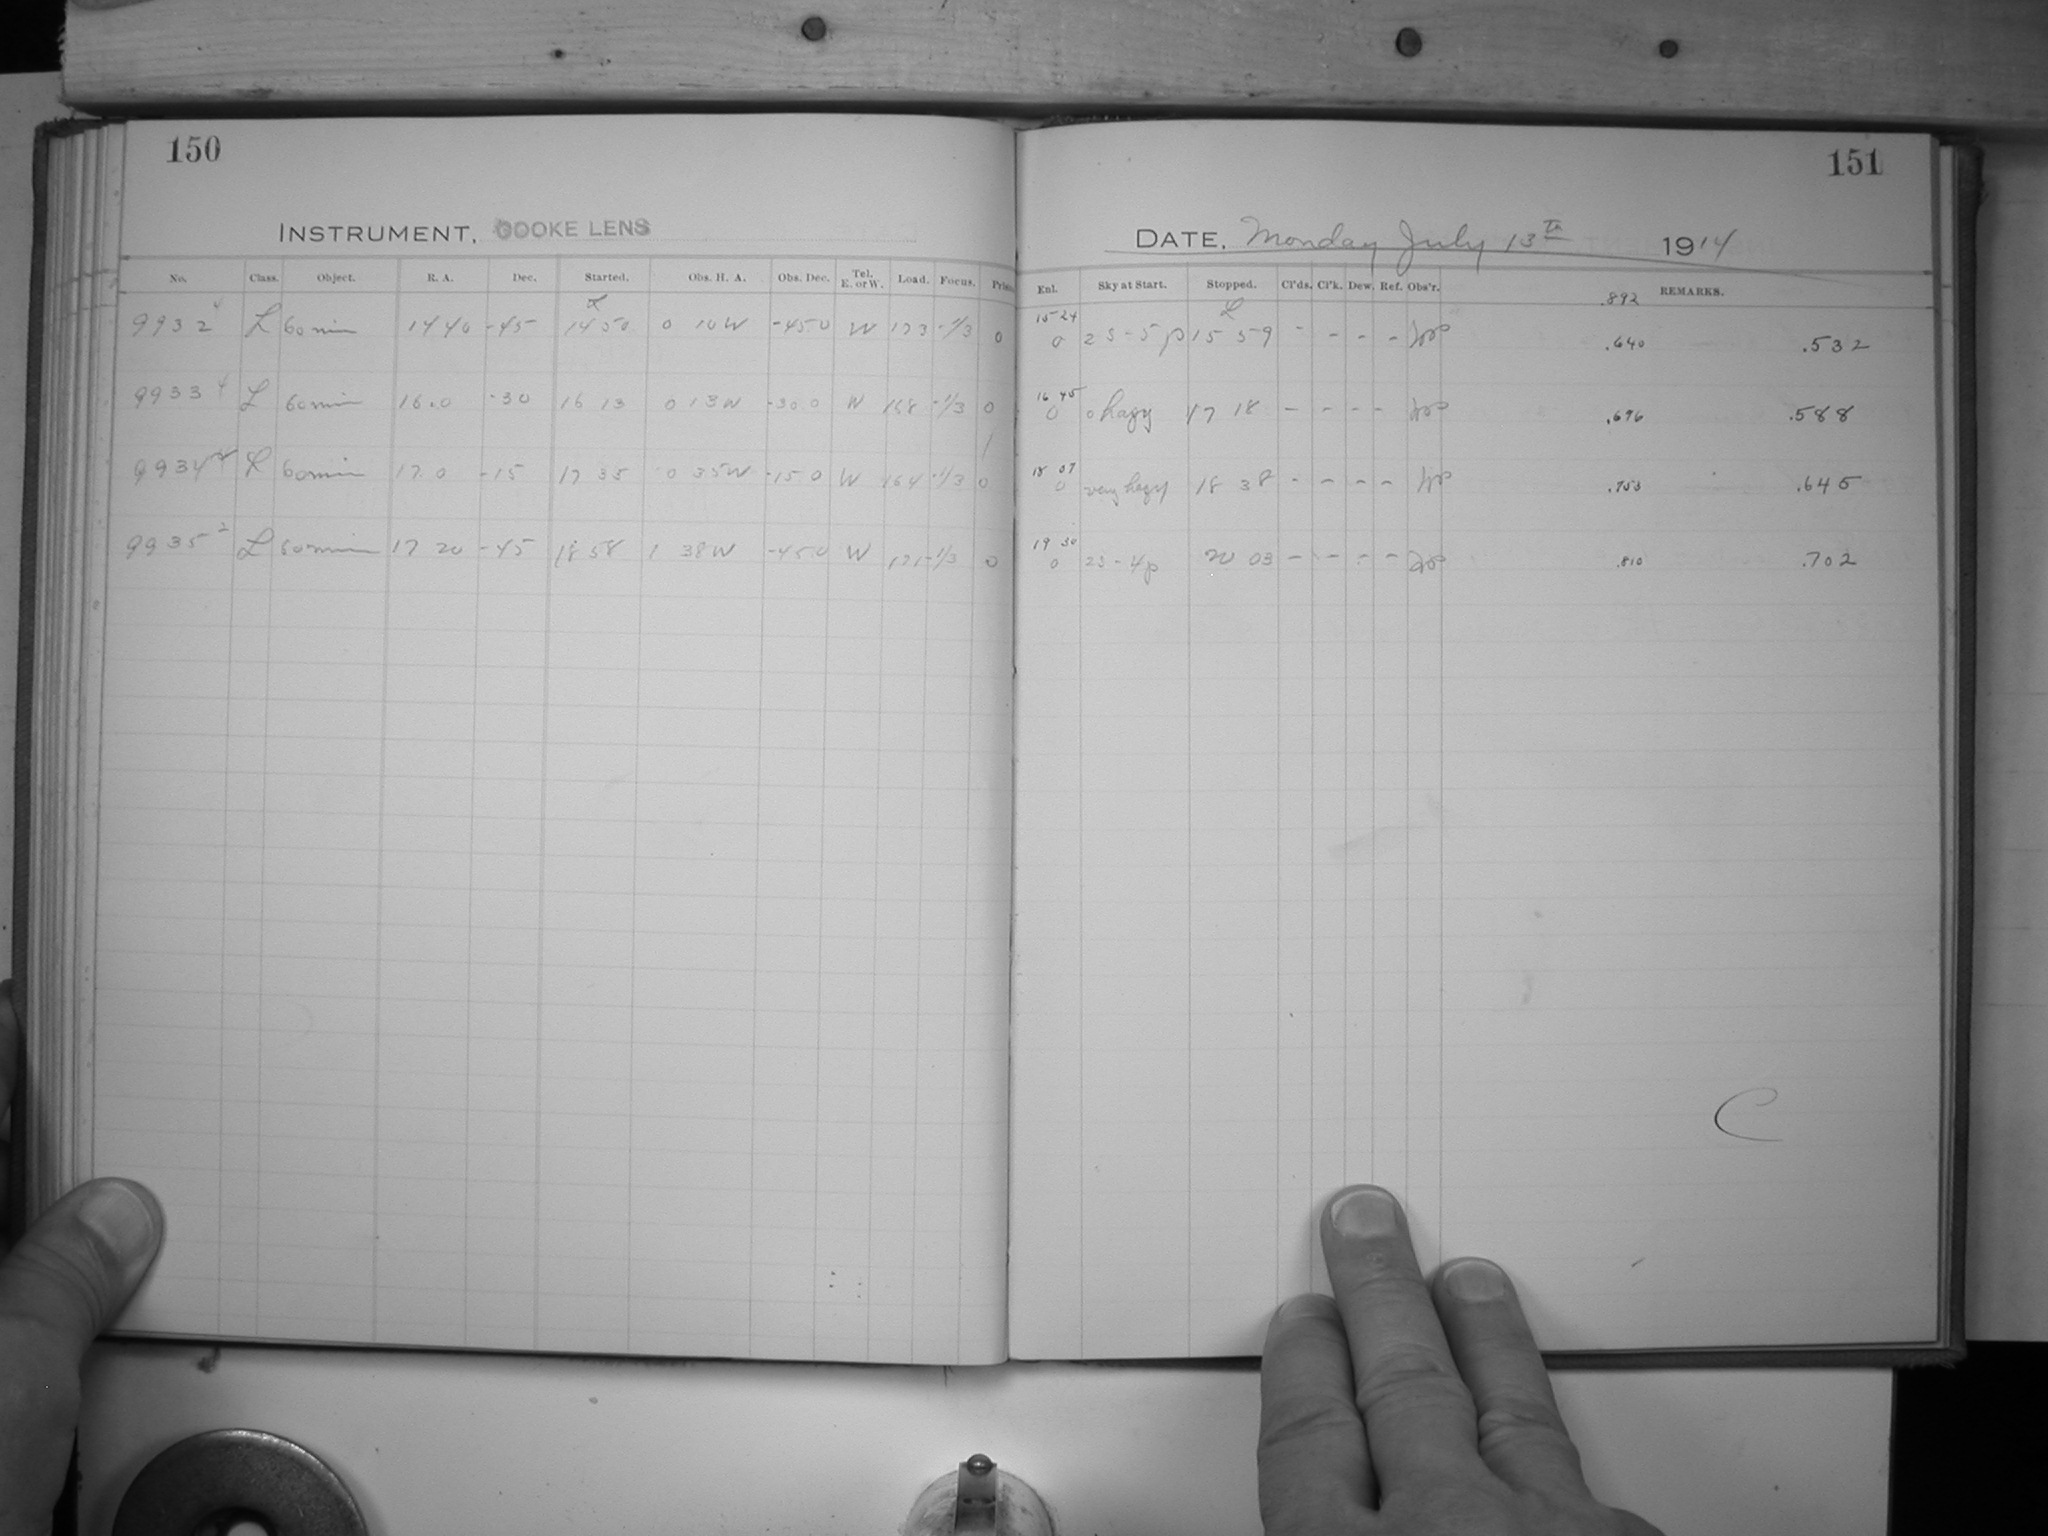 150
151
INSTRUMENT, COOKE LENS
DATE, Monday July 13th 1914
No. Class. Object. R. A. Dec. Started. Obs. H. A. Obs. Dec. Tel. E. or W. Load. Focus. Pris
Enl. Sky at Start. Stopped. Cl'ds. Cl'k. Dew. Ref. Obs'r. .892 REMARKS.
L L
15 24
9932 4 L 60 min 14 40 -45 14 50 0 10 W -45.0 W 173 -1/3 0 0 2s-5p 15 59 - - - - .640 .532
16 45
9933 4 L 60 min 16.0 -30 16 13 0 13 W -30.0 W 168 -1/3 0 0 0 hazy 17 18 - - - - .696 .588
18 07
9934 L 60 min 17.0 -15 17 35 0 35 W -15.0 W 164 -1/3 0 0 very hazy 18 38 - - - - .753 .645
19 30
9935 2 L 60 min 17 20 -45 18 58 1 38 W -45.0 W 171 -1/3 0 0 2s-4p 20 03 - - - - .810 .702
C